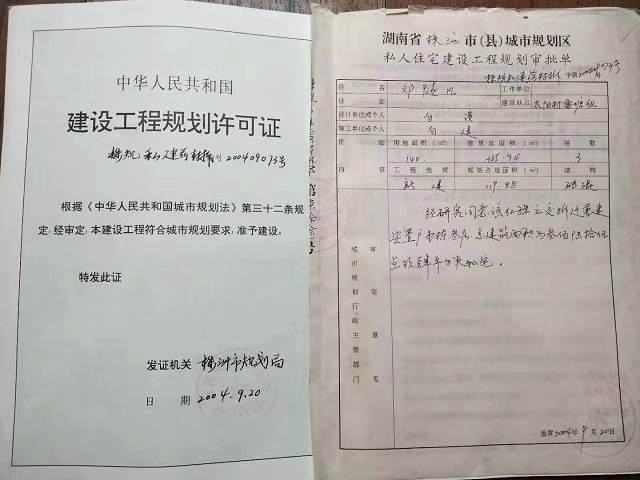 中华人民共和国
建设工程规划许可证
株规 私建 编号 200409073号
根据《中华人民共和国城市规划法》第三十二条规
定,经审定,本建设工程符合城市规划要求,准予建设。
特发此证
发证机关 株洲市规划局
日 期 2004.9.20
湖南省 株洲 市(县)城市规划区
私人住宅建设工程规划审批单
姓 名 邓 凡 工作单位
住 址 建设地点 太阳村
设计单位或个人 自
施工单位或个人 自建
批 准 用地面积(㎡) 建筑总面积(㎡) 层数
140 3
内 容 工程性质 底层占地面积(㎡) 结构
新建 119.88 砖混
经研究同意该红旗立交拆迁重建
安置户
点玖肆平方米私宅。
城市规划行政主管部门
审定意见
签章2004年9月20日